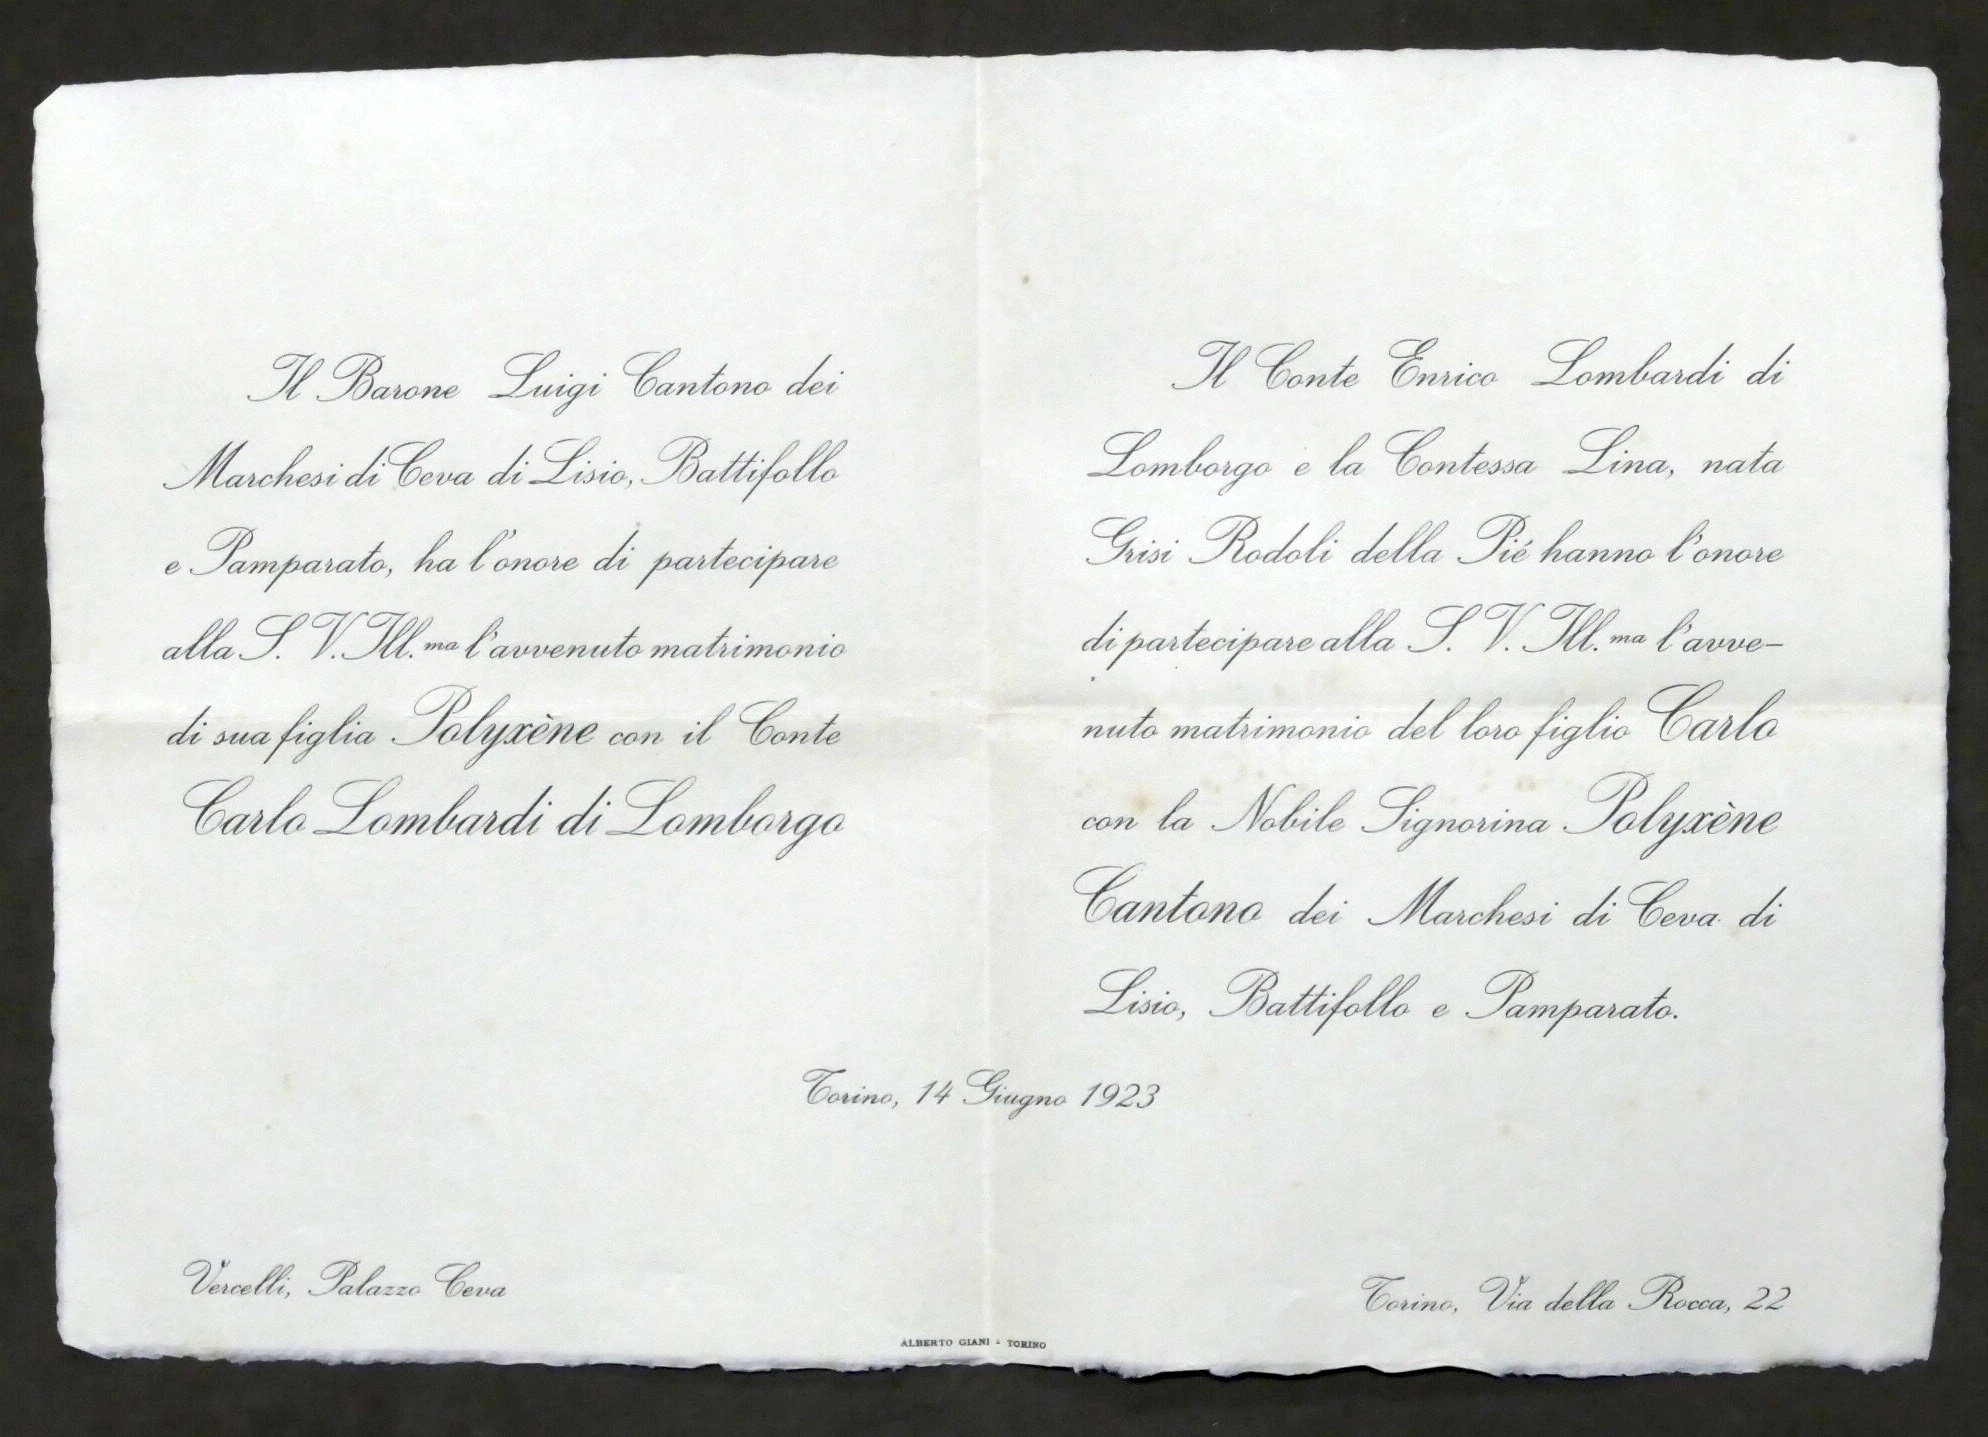 Il Barone Luigi Cantono dei
Marchesi di Ceva di Lisio, Battifollo
e Pamparato, ha l'onore di partecipare
alla S. V. Ill.ma l'avvenuto matrimonio
di sua figlia Polyxène con il Conte
Carlo Lombardi di Lomborgo
Il Conte Enrico Lombardi di
Lomborgo e la Contessa Lina, nata
Grisi Rodoli della Pié hanno l'onore
di partecipare alla S. V. Ill.ma l'avve-
nuto matrimonio del loro figlio Carlo
con la Nobile Signorina Polyxène
Cantono dei Marchesi di Ceva di
Lisio, Battifollo e Pamparato.
Torino, 14 Giugno 1923
Vercelli, Palazzo Ceva
Torino, Via della Rocca, 22
ALBERTO GIANI - TORINO